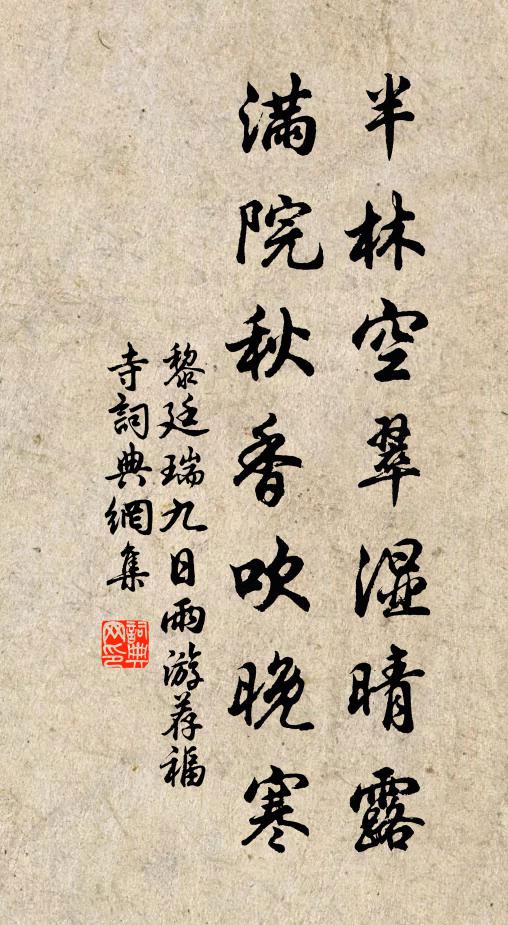 半林空翠湿晴露
满院秋香吹晚寒
黎廷瑞九日雨游荐福
寺詞典網集
詞典
网印